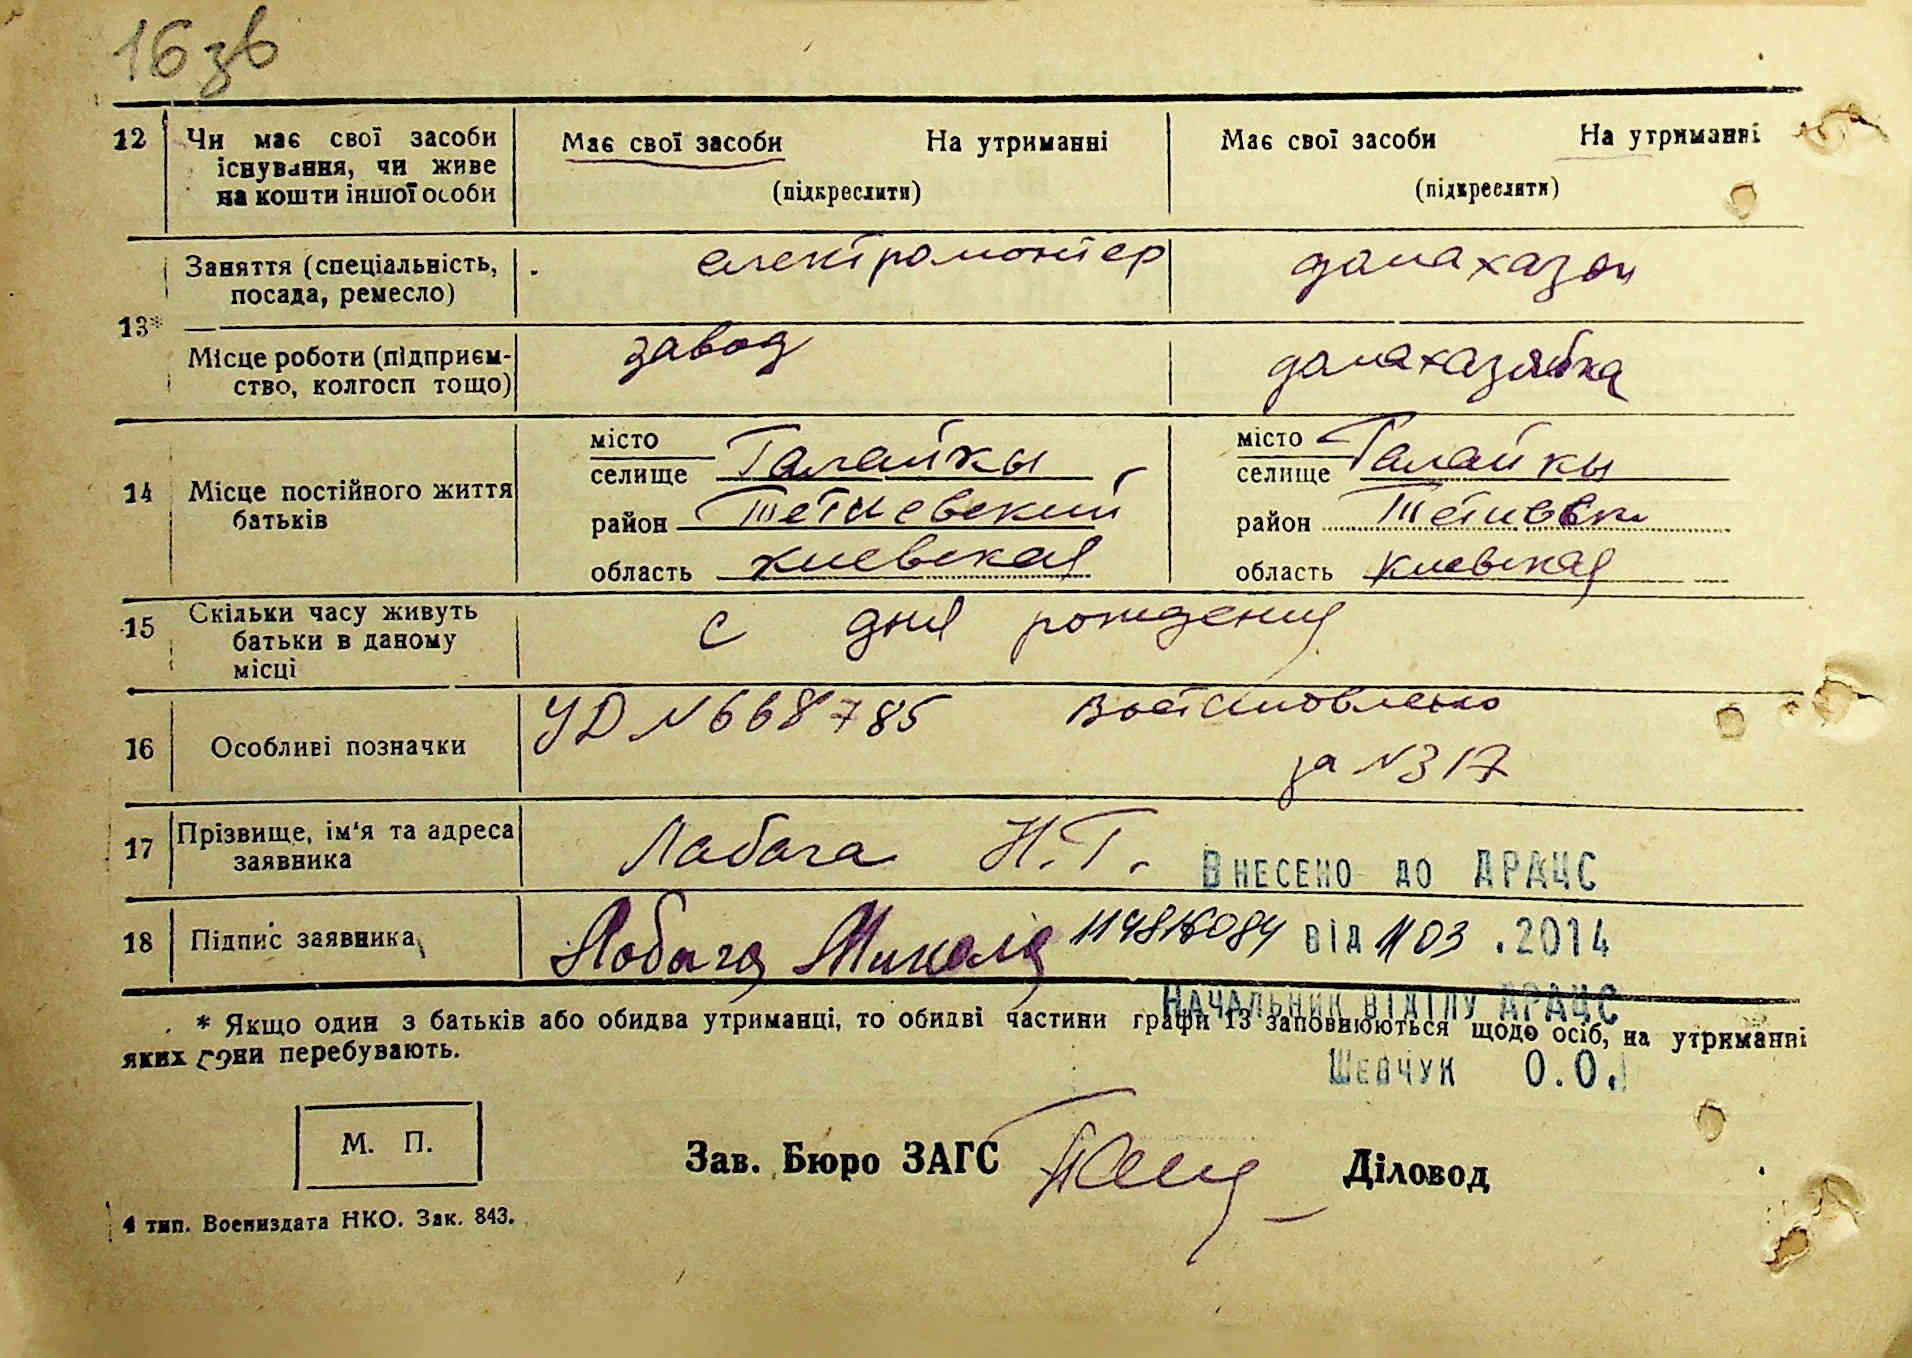 16 зв
12 Чи має свої засоби існування, чи живе на кошти іншої особи
Має свої засоби На утриманні
(підкреслити)
Має свої засоби На утриманні
(підкреслити)
13*
Заняття (спеціальність, посада, ремесло)
електромонтер
домахазяй
Місце роботи (підприєм-
ство, колгосп тощо)
завод
домахазяйка
14 Місце постійного життя батьків
місто
селище Галайкы
район Тетиевский
область киевская
місто
селище Галайкы
район Тетиевск
область Киевская
15 Скільки часу живуть
батьки в даному
місці
с дня рождения
16 Особливі позначки
УД №668785 Востановлено
за №317
17 Прізвище, ім'я та адреса
заявника
Лабага Н.Г.
Внесено до ДРАЦС
18 Підпис заявника
Лобага Микола
від 11 03 .2014
Начальник відділу ДРАЦС
* Якщо один з батьків або обидва утриманці, то обидві частини графи 13 заповнюються щодо осіб, на утриманні
яких вони перебувають.
Шевчук О.О.
М. П.
Зав. Бюро ЗАГС
Діловод
4 тип. Воениздата НКО. Зак. 843.